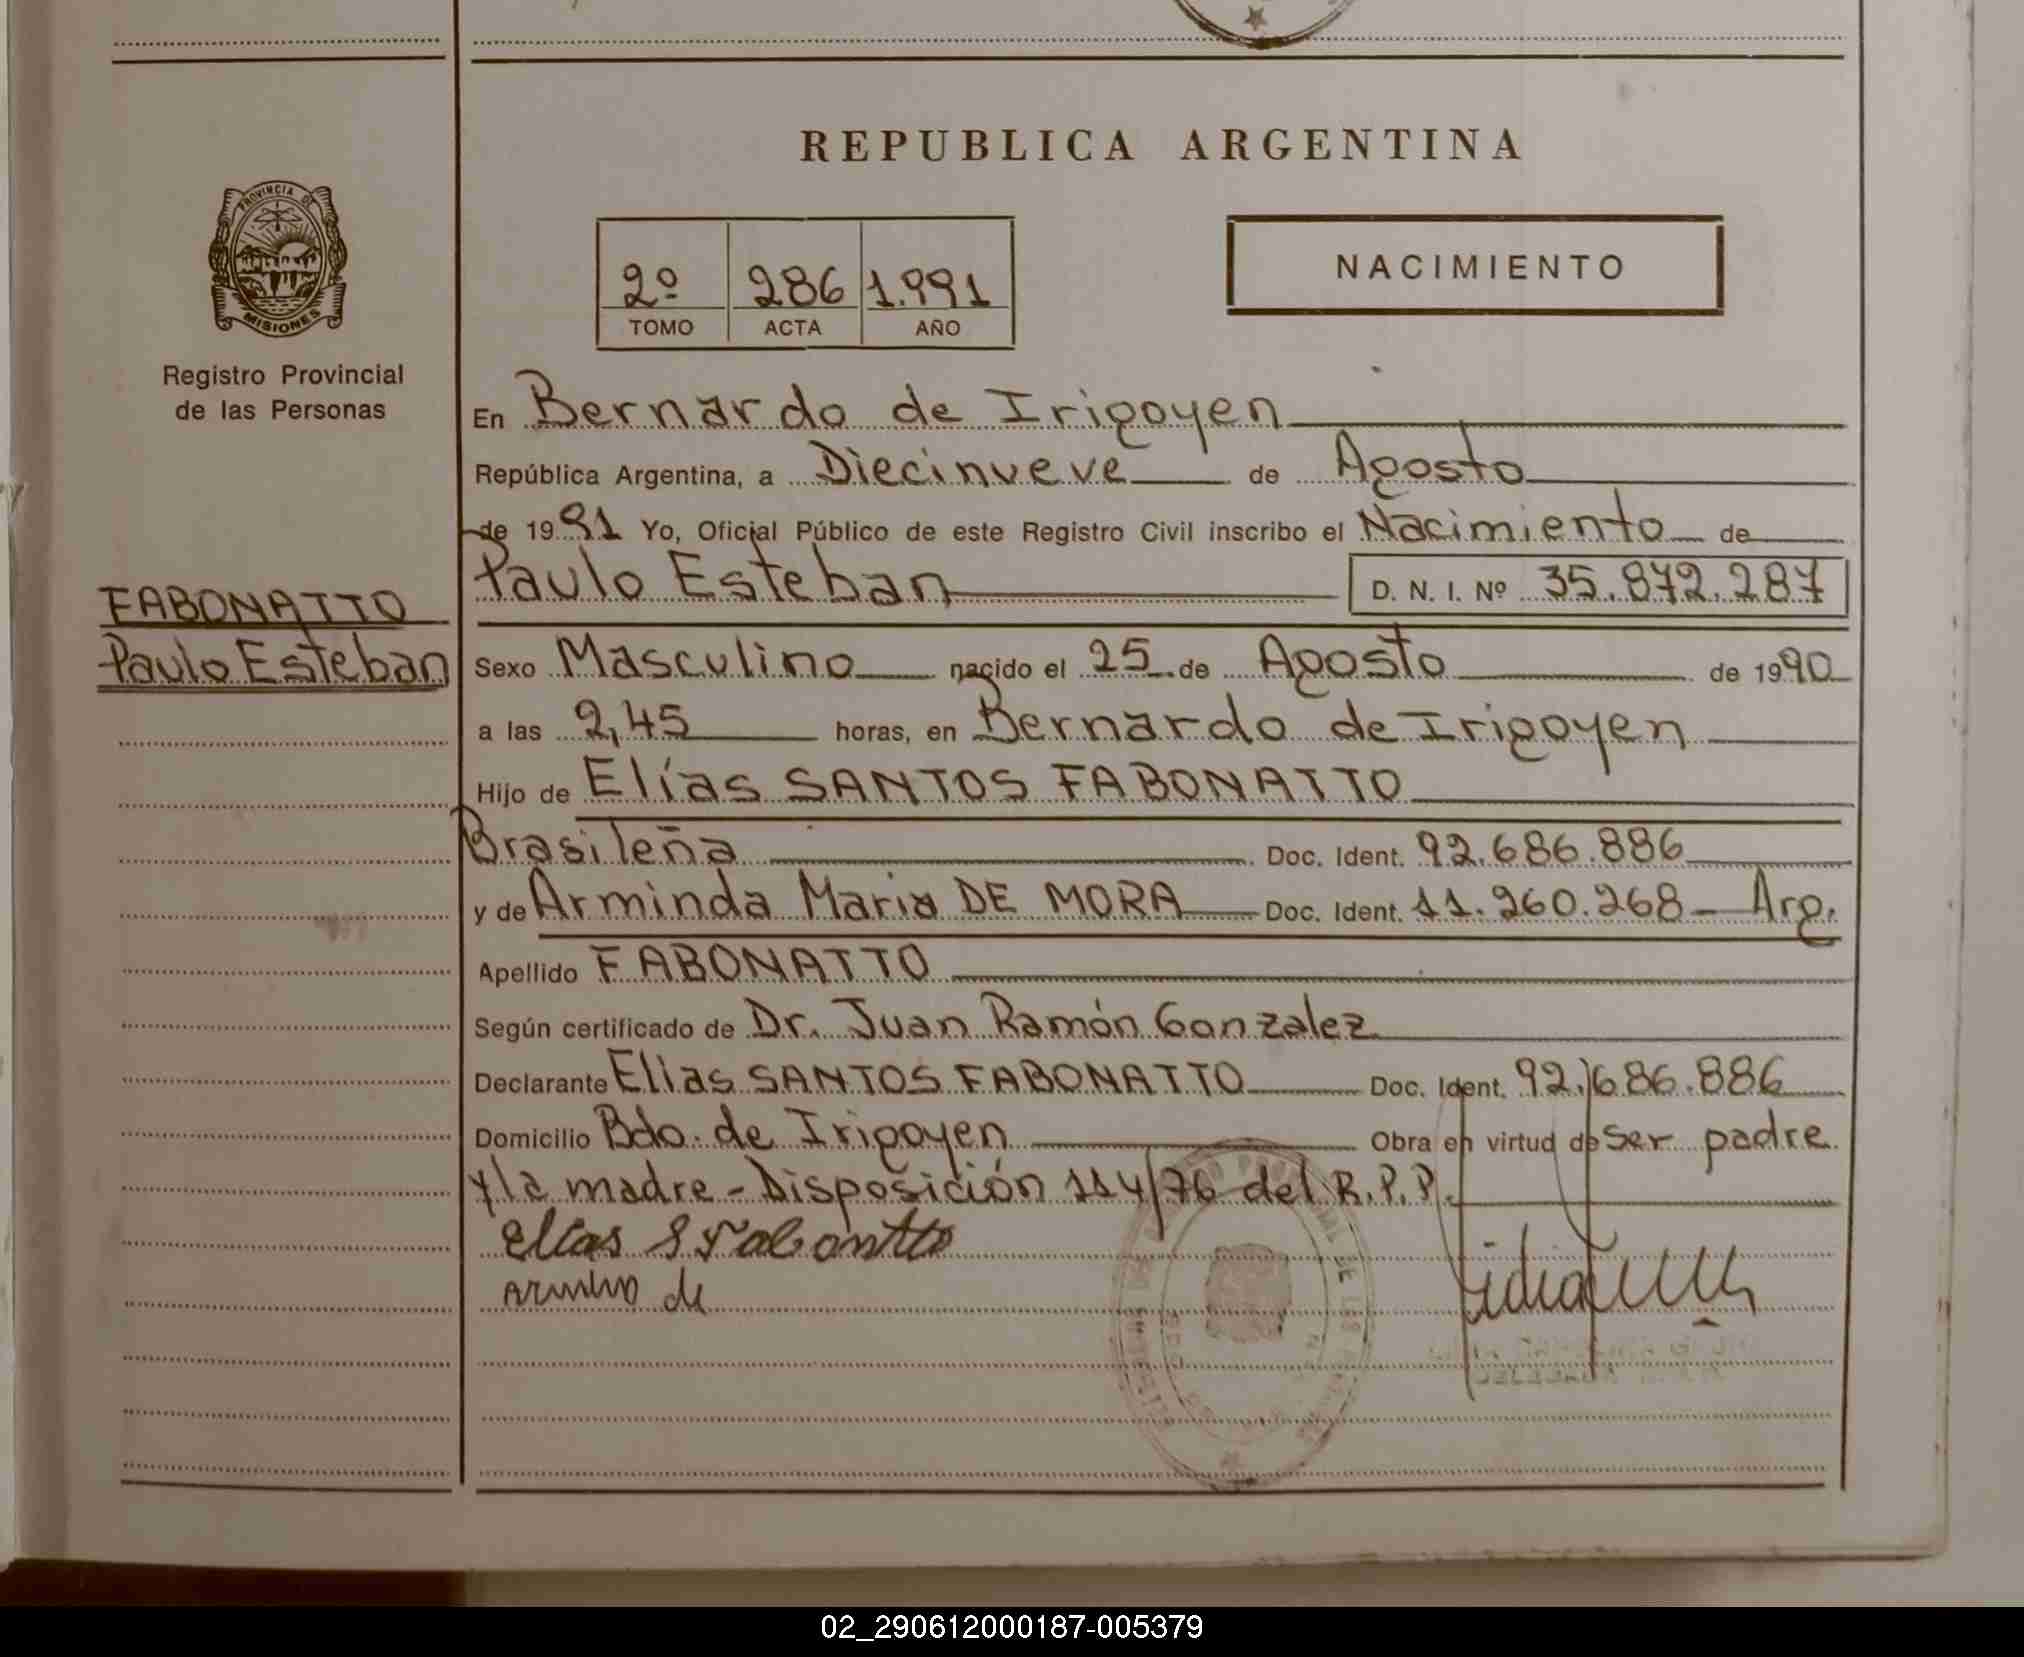 REPUBLICA ARGENTINA
PROVINCIA DE
MISIONES
Registro Provincial
de las Personas
2º 286 1.991
TOMO ACTA AÑO
NACIMIENTO
En Bernardo de Irigoyen
República Argentina, a Diecinueve de Agosto
de 1991 Yo, Oficial Público de este Registro Civil inscribo el Nacimiento de
Paulo Esteban D. N. I. Nº 35.872.287
FABONATTO
Paulo Esteban
Sexo Masculino nacido el 25 de Agosto de 1990
a las 2,45 horas, en Bernardo de Irigoyen
Hijo de Elías SANTOS FABONATTO
Brasileña Doc. Ident. 92.686.886
y de Arminda Maria DE MORA Doc. Ident. 11.260.268 - Arg.
Apellido FABONATTO
Según certificado de Dr. Juan Ramón Gonzalez
Declarante Elias SANTOS FABONATTO Doc. Ident. 92.686.886
Domicilio Bdo. de Irigoyen Obra en virtud de ser padre
y la madre - Disposición 114/76 del R.P.P.
Elias S Fabonatto
de
02_290612000187-005379